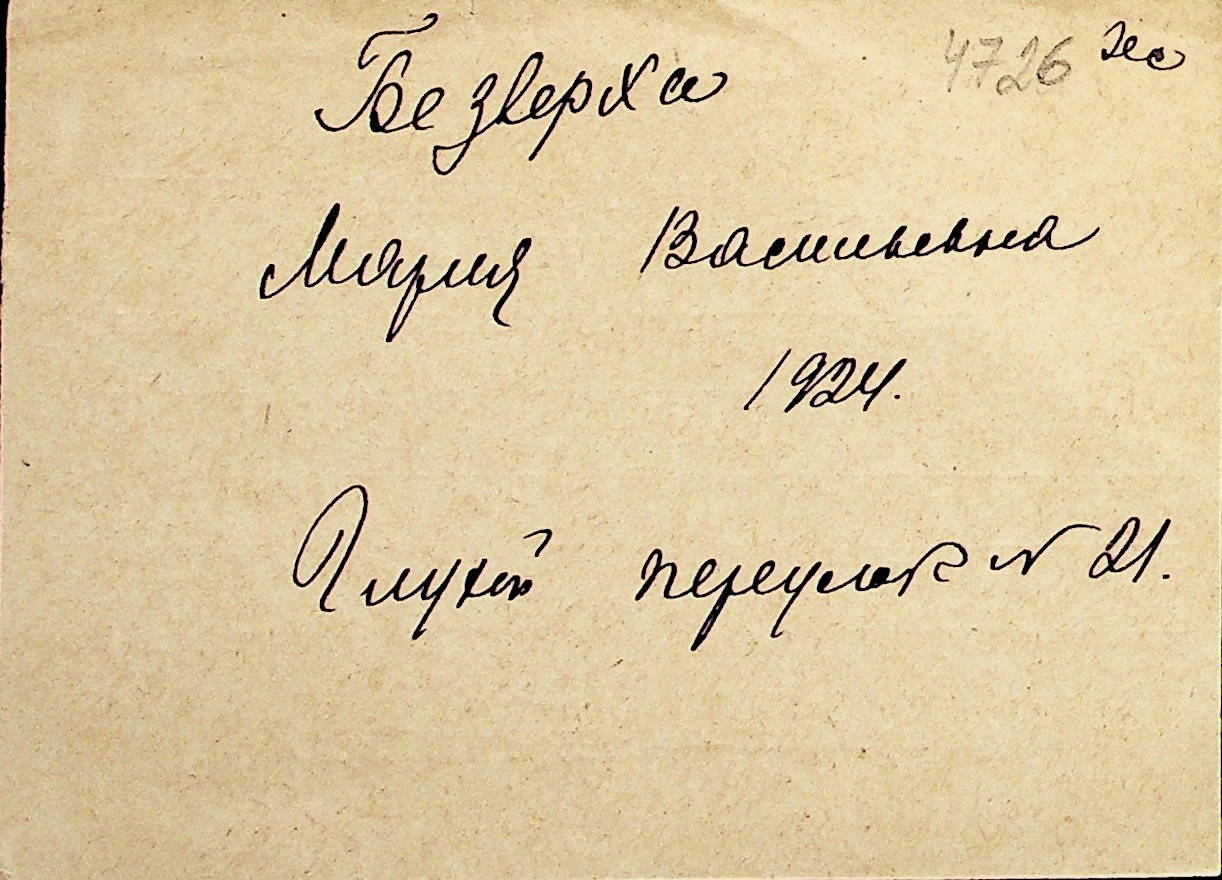 Безверха 4726
Мария Васильевна
1924.
Глухой переулок № 21.